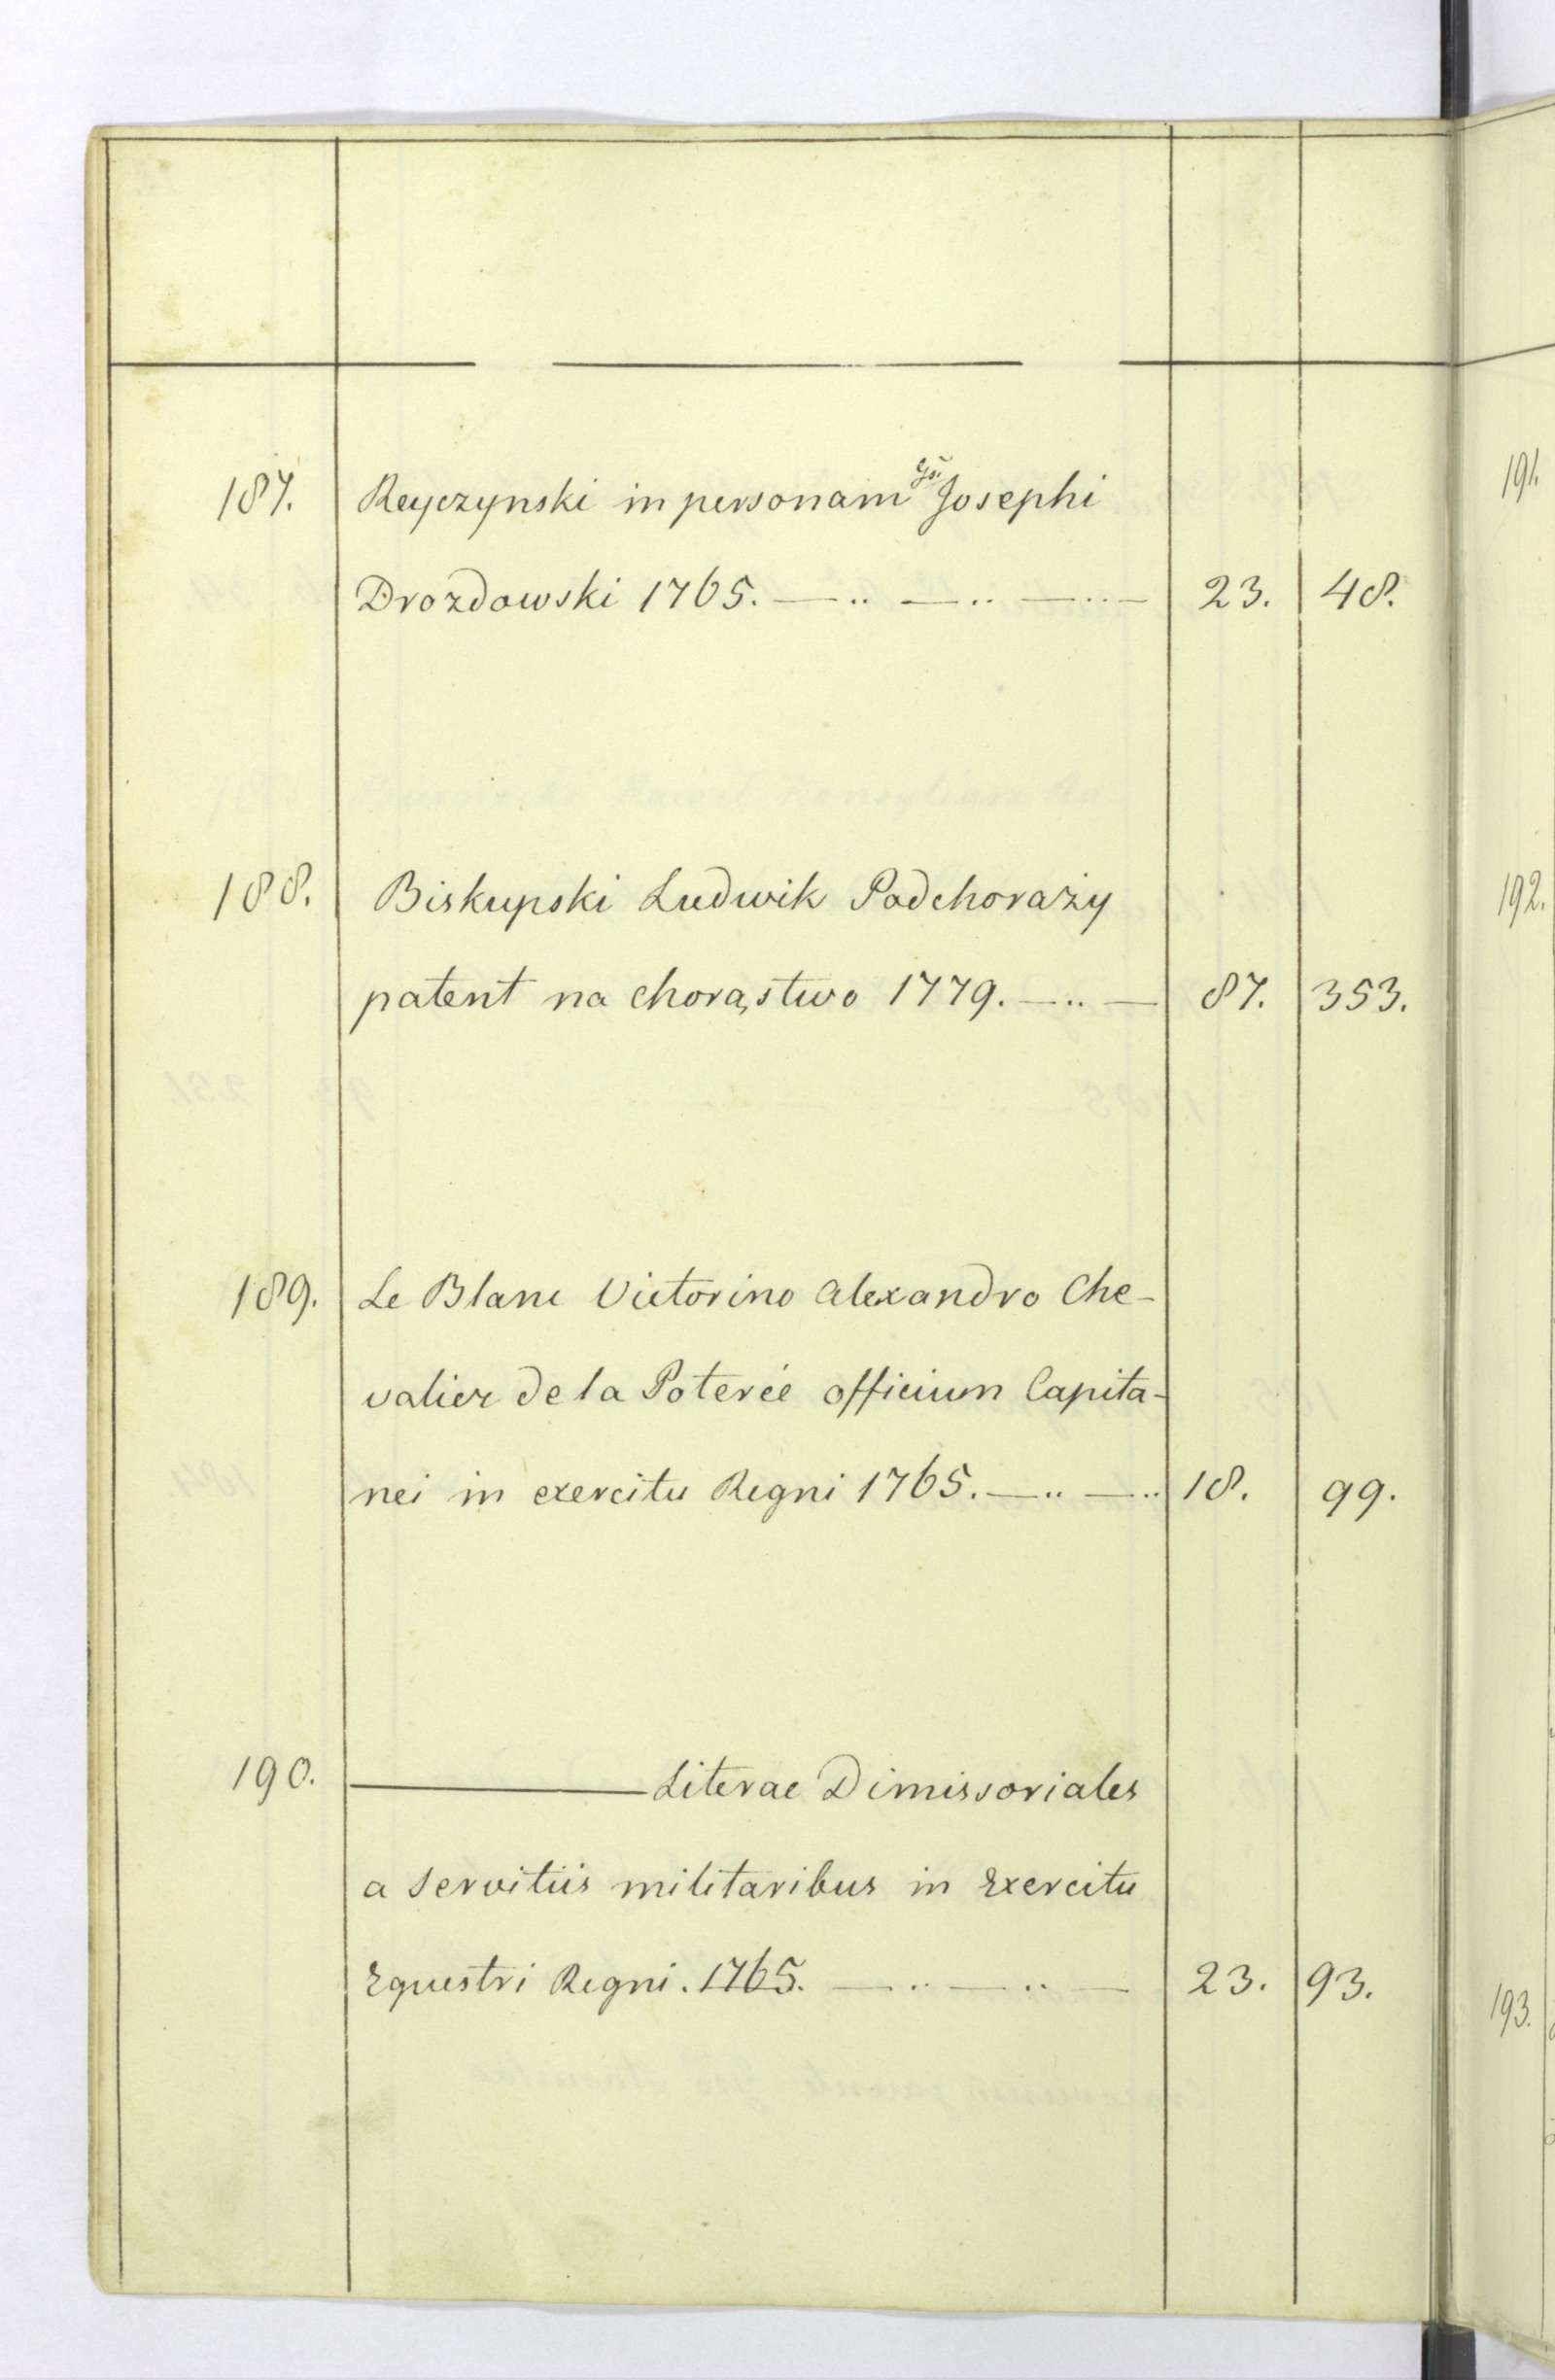 187. Reyczynski in personam Josephi
Drozdowski 1765. 23. 48.
188. Biskupski Ludwik Podchorąży
patent na chorąstwo 1779. 87. 353.
189. Le Blanc Victorino Alexandro Che-
valier de la Poterée officium Capita-
nei in exercitu Regni 1765. 18. 99.
190. Literae Dimissoriales
a servitiis militaribus in Exercitu
Equestri Regni. 1765. 23. 93.
191.
192.
193.